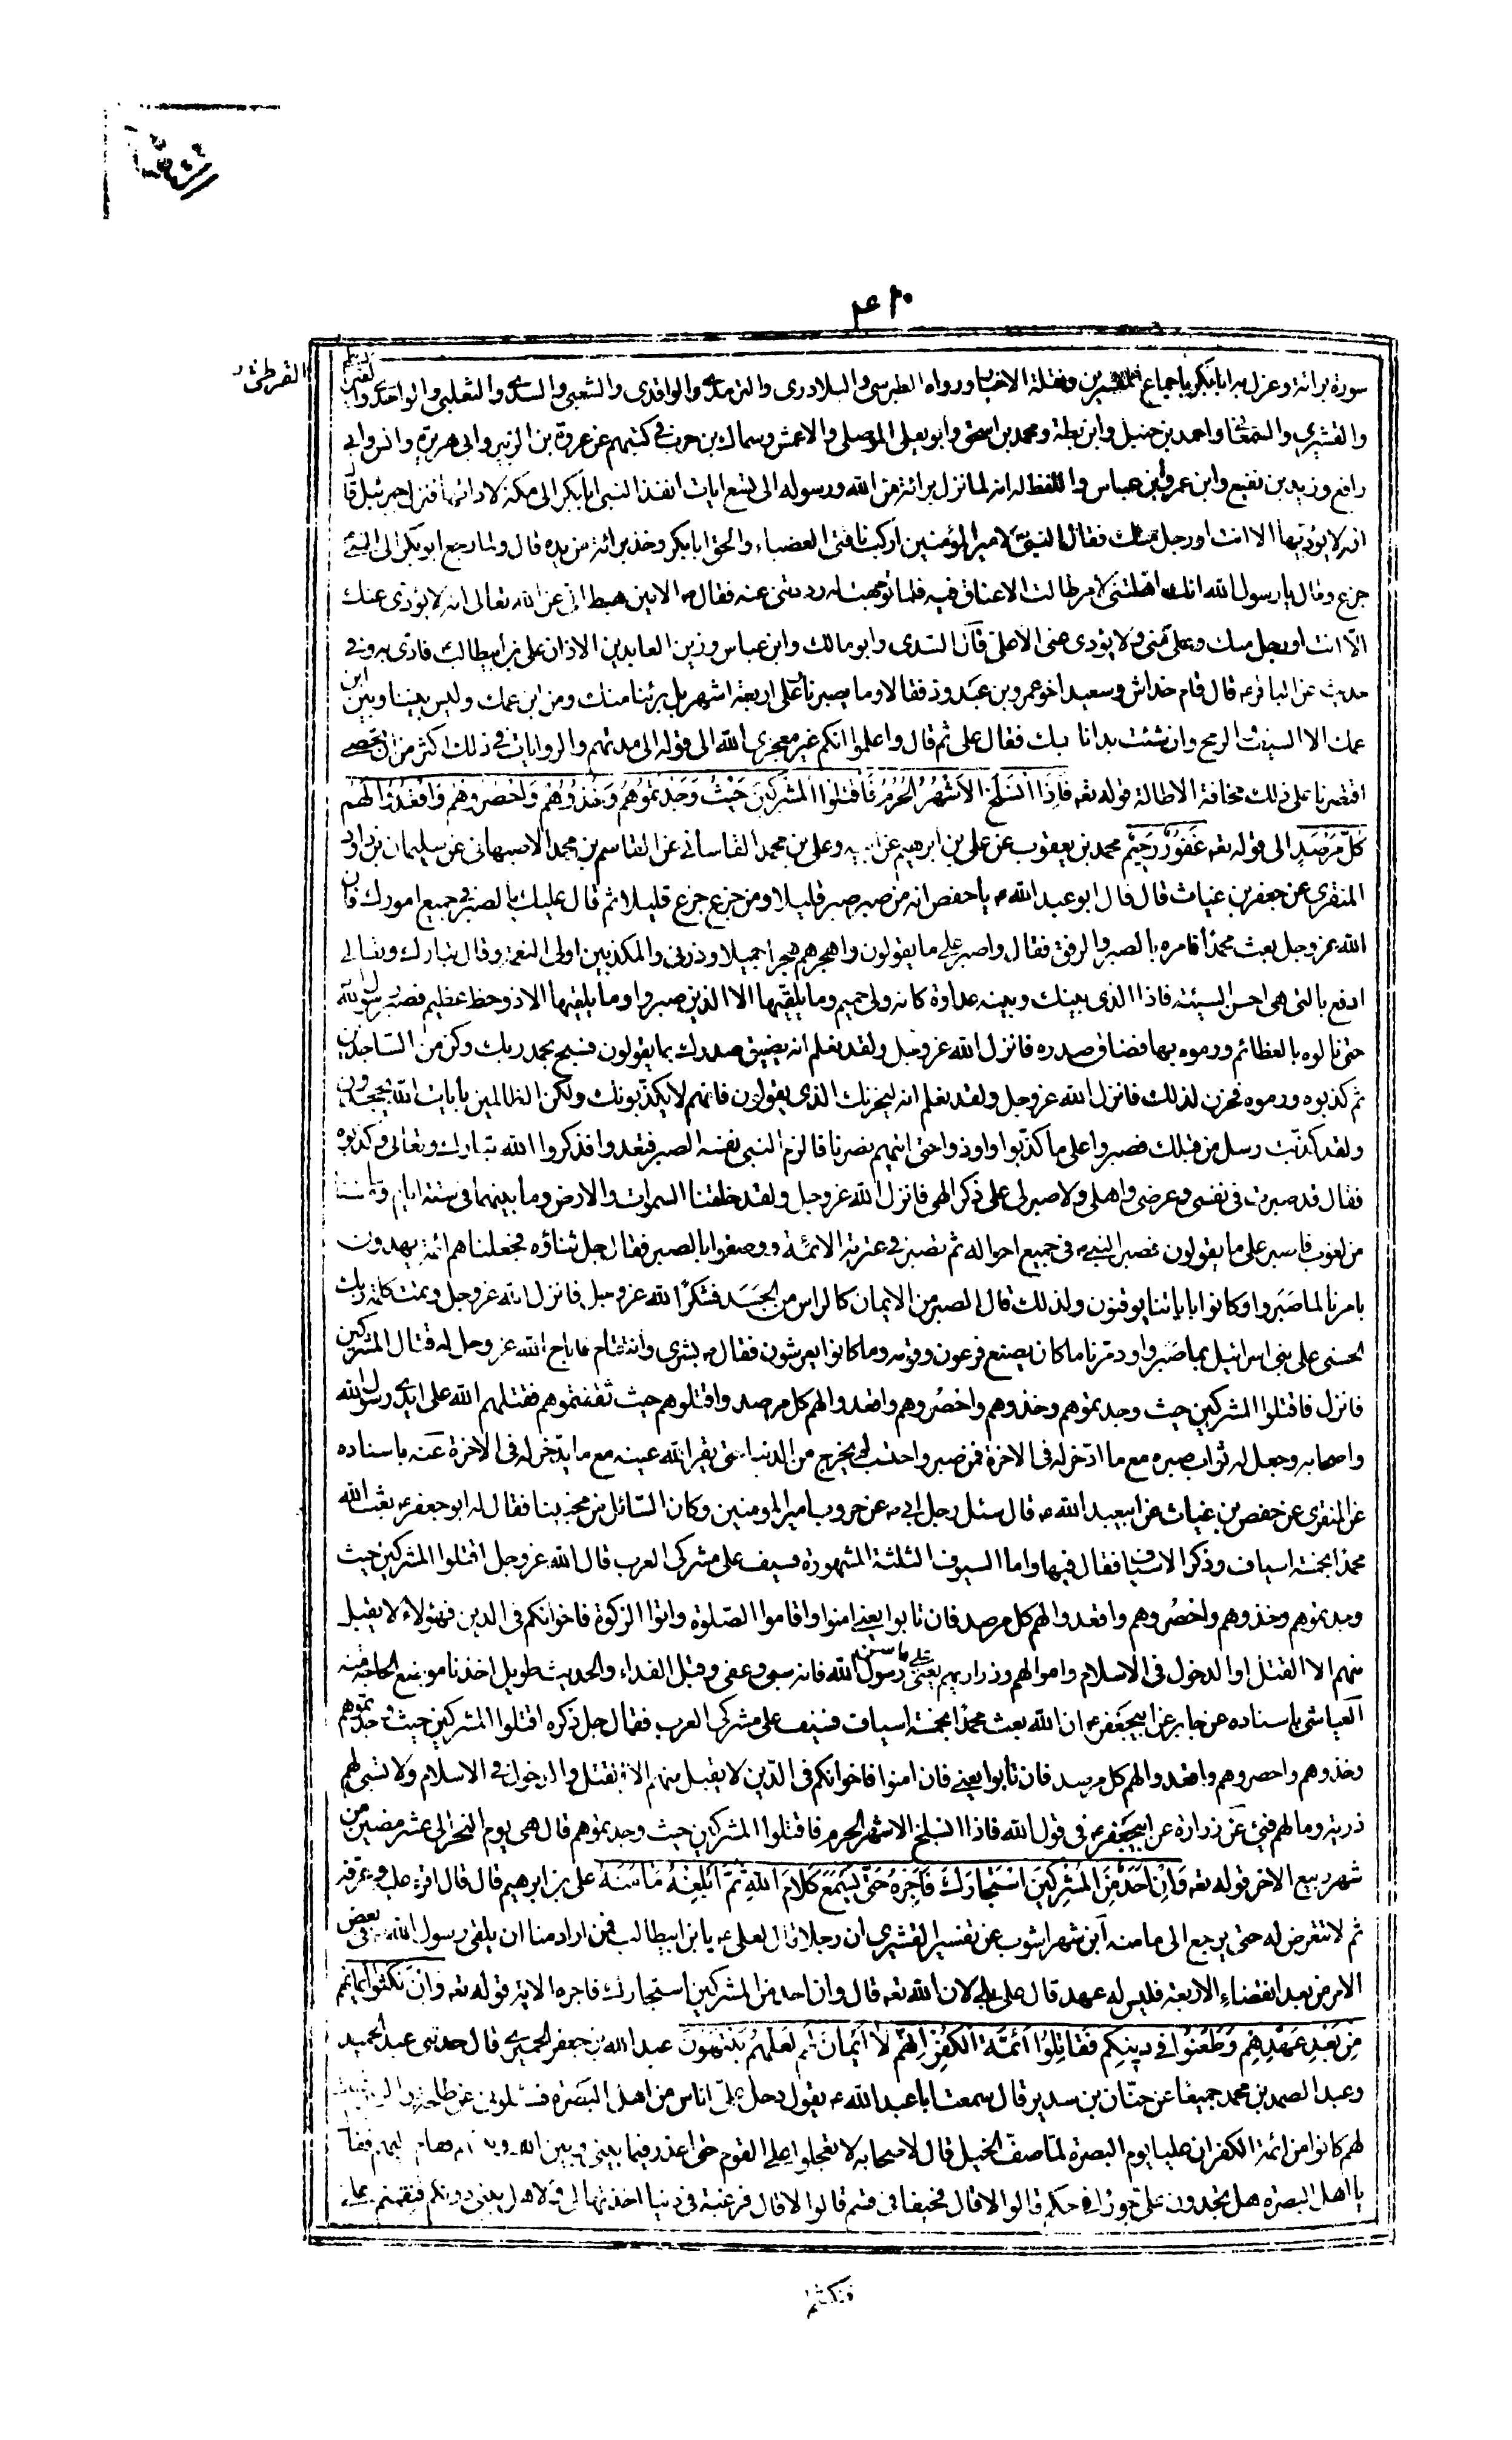 سورة برائة وعزل به ابا بكر باجماع المفسرين ونقلة الاخبار ورواه الطبرسى والبلاذرى والترمذى والواقدى والشعبى والسدى والثعلبى والواحدى
القرطى
والقشيرى والسمعانى واحمد بن حنبل وابن بطة ومحمد بن اسحق وابو يعلى الموصلى والاعمش وسماك بن حرب فى كتبهم عن عروة بن الزبير وابى هريرة وانس وابى
رافع وزيد بن نفيع وابن عمر وابن عباس واللفظ له انه لما نزل برائة من الله ورسوله الى تسع ايات انفذ النبى ابا بكر الى مكة لادائها فنزل جبرئيل قال
انه لا يؤديها الا انت او رجل منك فقال النبى لامير المؤمنين اركب ناقتى العضباء والحق ابا بكر وخذ برائة من يده قال ولما رجع ابو بكر الى النبى
جزع وقال يا رسول الله انك اهلتنى لامر طالت الاعناق فيه فلما توجهت له رددتنى عنه فقال الامين هبط الى عن الله تعالى انه لا يؤدى عنك
الا انت او رجل منك وعلى منى ولا يؤدى عنى الا على قال السدى وابو مالك وابن عباس وزين العابدين الاذان على بن ابيطالب فادى به وفى
حديث عن الباقر قال قام خداش وسعيد اخو عمرو بن عبدود فقالا وما يسيرنا على اربعة اشهر بل برئنا منك ومن ابن عمك وليس بيننا وبين ابن
عمك الا السيف والرمح وان شئت بدانا بك فقال على ثم قال واعلموا انكم غير معجزى الله الى قوله الى مدتهم والروايات فى ذلك اكثر من ان تحصى
اقتصرنا على ذلك مخافة الاطالة قوله تعه فَاِذَا انْسَلَخَ الاَشْهُرُ الحُرُمُ فَاقْتُلُوا المُشْرِكِينَ حَيْثُ وَجَدْتُمُوهُمْ وَخُذُوهُمْ وَاحْصُرُوهُمْ وَاقْعُدُوا لَهُمْ
كُلَّ مَرْصَدٍ الى قوله تعه غَفُورٌ رَحِيمٌ محمد بن يعقوب عن على بن ابرهيم عن ابيه وعلى بن محمد القاسانى عن القاسم بن محمد الاصبهانى عن سليمان بن داود
المنقرى عن جعفر بن غياث قال قال ابو عبد الله يا حفص انه من صبر صبر قليلا ومن جزع جزع قليلا ثم قال عليك بالصبر فى جميع امورك فان
الله عز وجل بعث محمدا فامره بالصبر والرفق فقال واصبر على ما يقولون واهجرهم هجرا جميلا وذرنى والمكذبين اولى النعمة وقال تبارك وتعالى
ادفع بالتى هى احسن السيئة فاذا الذى بينك وبينه عداوة كانه ولى حميم وما يلقيها الا الذين صبروا وما يلقيها الا ذو حظ عظيم فصبر رسول الله
حتى نالوه بالعظائم ورموه بها فضاق صدره فانزل الله عز وجل ولقد نعلم انه يضيق صدرك بما يقولون فسبح بحمد ربك وكن من الساجدين
ثم كذبوه ورموه فحزن لذلك فانزل الله عز وجل ولقد نعلم انه ليحزنك الذى يقولون فانهم لا يكذبونك ولكن الظالمين بايات الله يجحدون
ولقد كذبت رسل من قبلك فصبروا على ما كذبوا واوذوا حتى اتيهم نصرنا فالزم النبى نفسه الصبر فتعدوا فذكروا الله تبارك وتعالى وكذبوه
فقال قد صبرت فى نفسى وعرضى واهلى ولا صبر لى على ذكر الهى فانزل الله عز وجل ولقد خلقنا السموات والارض وما بينهما فى ستة ايام وما مسنا
من لغوب فاصبر على ما يقولون فصبر النبى فى جميع احواله ثم بشر فى عترته الائمة ووصفوا بالصبر فقال جل ثناؤه فجعلناهم ائمة يهدون
بامرنا لما صبروا وكانوا باياتنا يوقنون ولذلك قال الصبر من الايمان كالراس من الجسد فشكر الله عز وجل فانزل الله عز وجل وتمت كلمة ربك
الحسنى على بنى اسرائيل بما صبروا ودمرنا ما كان يصنع فرعون وقومه وما كانوا يعرشون فقال بشرى وانتقام فاباح الله عز وجل له قتال المشركين
فانزل فاقتلوا المشركين حيث وجدتموهم وخذوهم واحصروهم واقعدوا لهم كل مرصد واقتلوهم حيث ثقفتموهم فقتلهم الله على ايدى رسول الله
واصحابه وجعل له ثواب صبره مع ما ادخر له فى الاخرة فمن صبر واحتسب لم يخرج من الدنيا حتى يقر الله عينه مع ما يدخر له فى الاخرة عنه باسناده
عن المنقرى عن حفص بن غياث عن ابيعبد الله قال سئل رجل ابى عن حروب امير المومنين وكان السائل من محبينا فقال له ابو جعفر بعث الله
محمدا بخمسة اسياف وذكر الاسياف فقال فيها واما السيوف الثلثة المشهورة فسيف على مشركى العرب قال الله عز وجل اقتلوا المشركين حيث
وجدتموهم وخذوهم واحصروهم واقعدوا لهم كل مرصد فان تابوا يعنى امنوا واقاموا الصلوة واتوا الزكوة فاخوانكم فى الدين فهؤلاء لا يقبل
منهم الا القتل او الدخول فى الاسلام واموالهم وذراريهم يعنى على ما سن رسول الله فانه سبى وعفى وقبل الفداء والحديث طويل اخذنا موضع الحاجة منه
العياشى باسناده عن جابر عن ابيجعفر ان الله بعث محمدا بخمسة اسياف فسيف على مشركى العرب فقال جل ذكره اقتلوا المشركين حيث وجدتموهم
وخذوهم واحصروهم واقعدوا لهم كل مرصد فان تابوا يعنى فان امنوا فاخوانكم فى الدين لا يقبل منهم الا القتل والدخول فى الاسلام ولا تسبى لهم
ذرية وما لهم فئ عن زرارة عن ابيجعفر فى قول الله فاذا انسلخ الاشهر الحرم فاقتلوا المشركين حيث وجدتموهم قال هى يوم النحر الى عشر مضين من
شهر ربيع الاخر قوله تعه وَاِنْ اَحَدٌ مِنَ المُشْرِكِينَ اسْتَجَارَكَ فَاَجِرْهُ حَتَّى يَسْمَعَ كَلَامَ اللهِ ثُمَّ اَبْلِغْهُ مَاْمَنَهُ على بن ابرهيم قال قال اقرء عليه وعرفه
ثم لا تتعرض له حتى يرجع الى مامنه ابن شهراشوب عن تفسير القشيرى ان رجلا قال لعلى يا بن ابيطالب فمن اراد منا ان يلقى رسول الله فى بعض
الامر من بعد انقضاء الاربعة فليس له عهد قال على بلى لان الله تعه قال وان احد من المشركين استجارك فاجره الاية قوله تعه وَاِنْ نَكَثُوا اَيْمَانَهُمْ
مِنْ بَعْدِ عَهْدِهِمْ وَطَعَنُوا فِى دِينِكُمْ فَقَاتِلُوا اَئِمَّةَ الْكُفْرِ اِنَّهُمْ لَا اَيْمَانَ لَهُمْ لَعَلَّهُمْ يَنْتَهُونَ عبد الله بن جعفر الحميرى قال حدثنى عبد الحميد
وعبد الصمد بن محمد جميعا عن حنان بن سدير قال سمعت ابا عبد الله يقول دخل على اناس من اهل البصرة فسئلونى عن طلحة والزبير فقلت
لهم كانوا من ائمة الكفر ان عليا يوم البصرة لما صف الخيل قال لاصحابه لا تعجلوا على القوم حتى اعذر فيما بينى وبين الله وبينهم فقام اليهم فقال
يا اهل البصرة هل تجدون على جورا فى حكم قالوا لا قال فحيفا فى قسم قالوا لا قال فرغبة فى دنيا اخذتها لى ولاهل بيتى دونكم فنقمتم على
فنكثتم